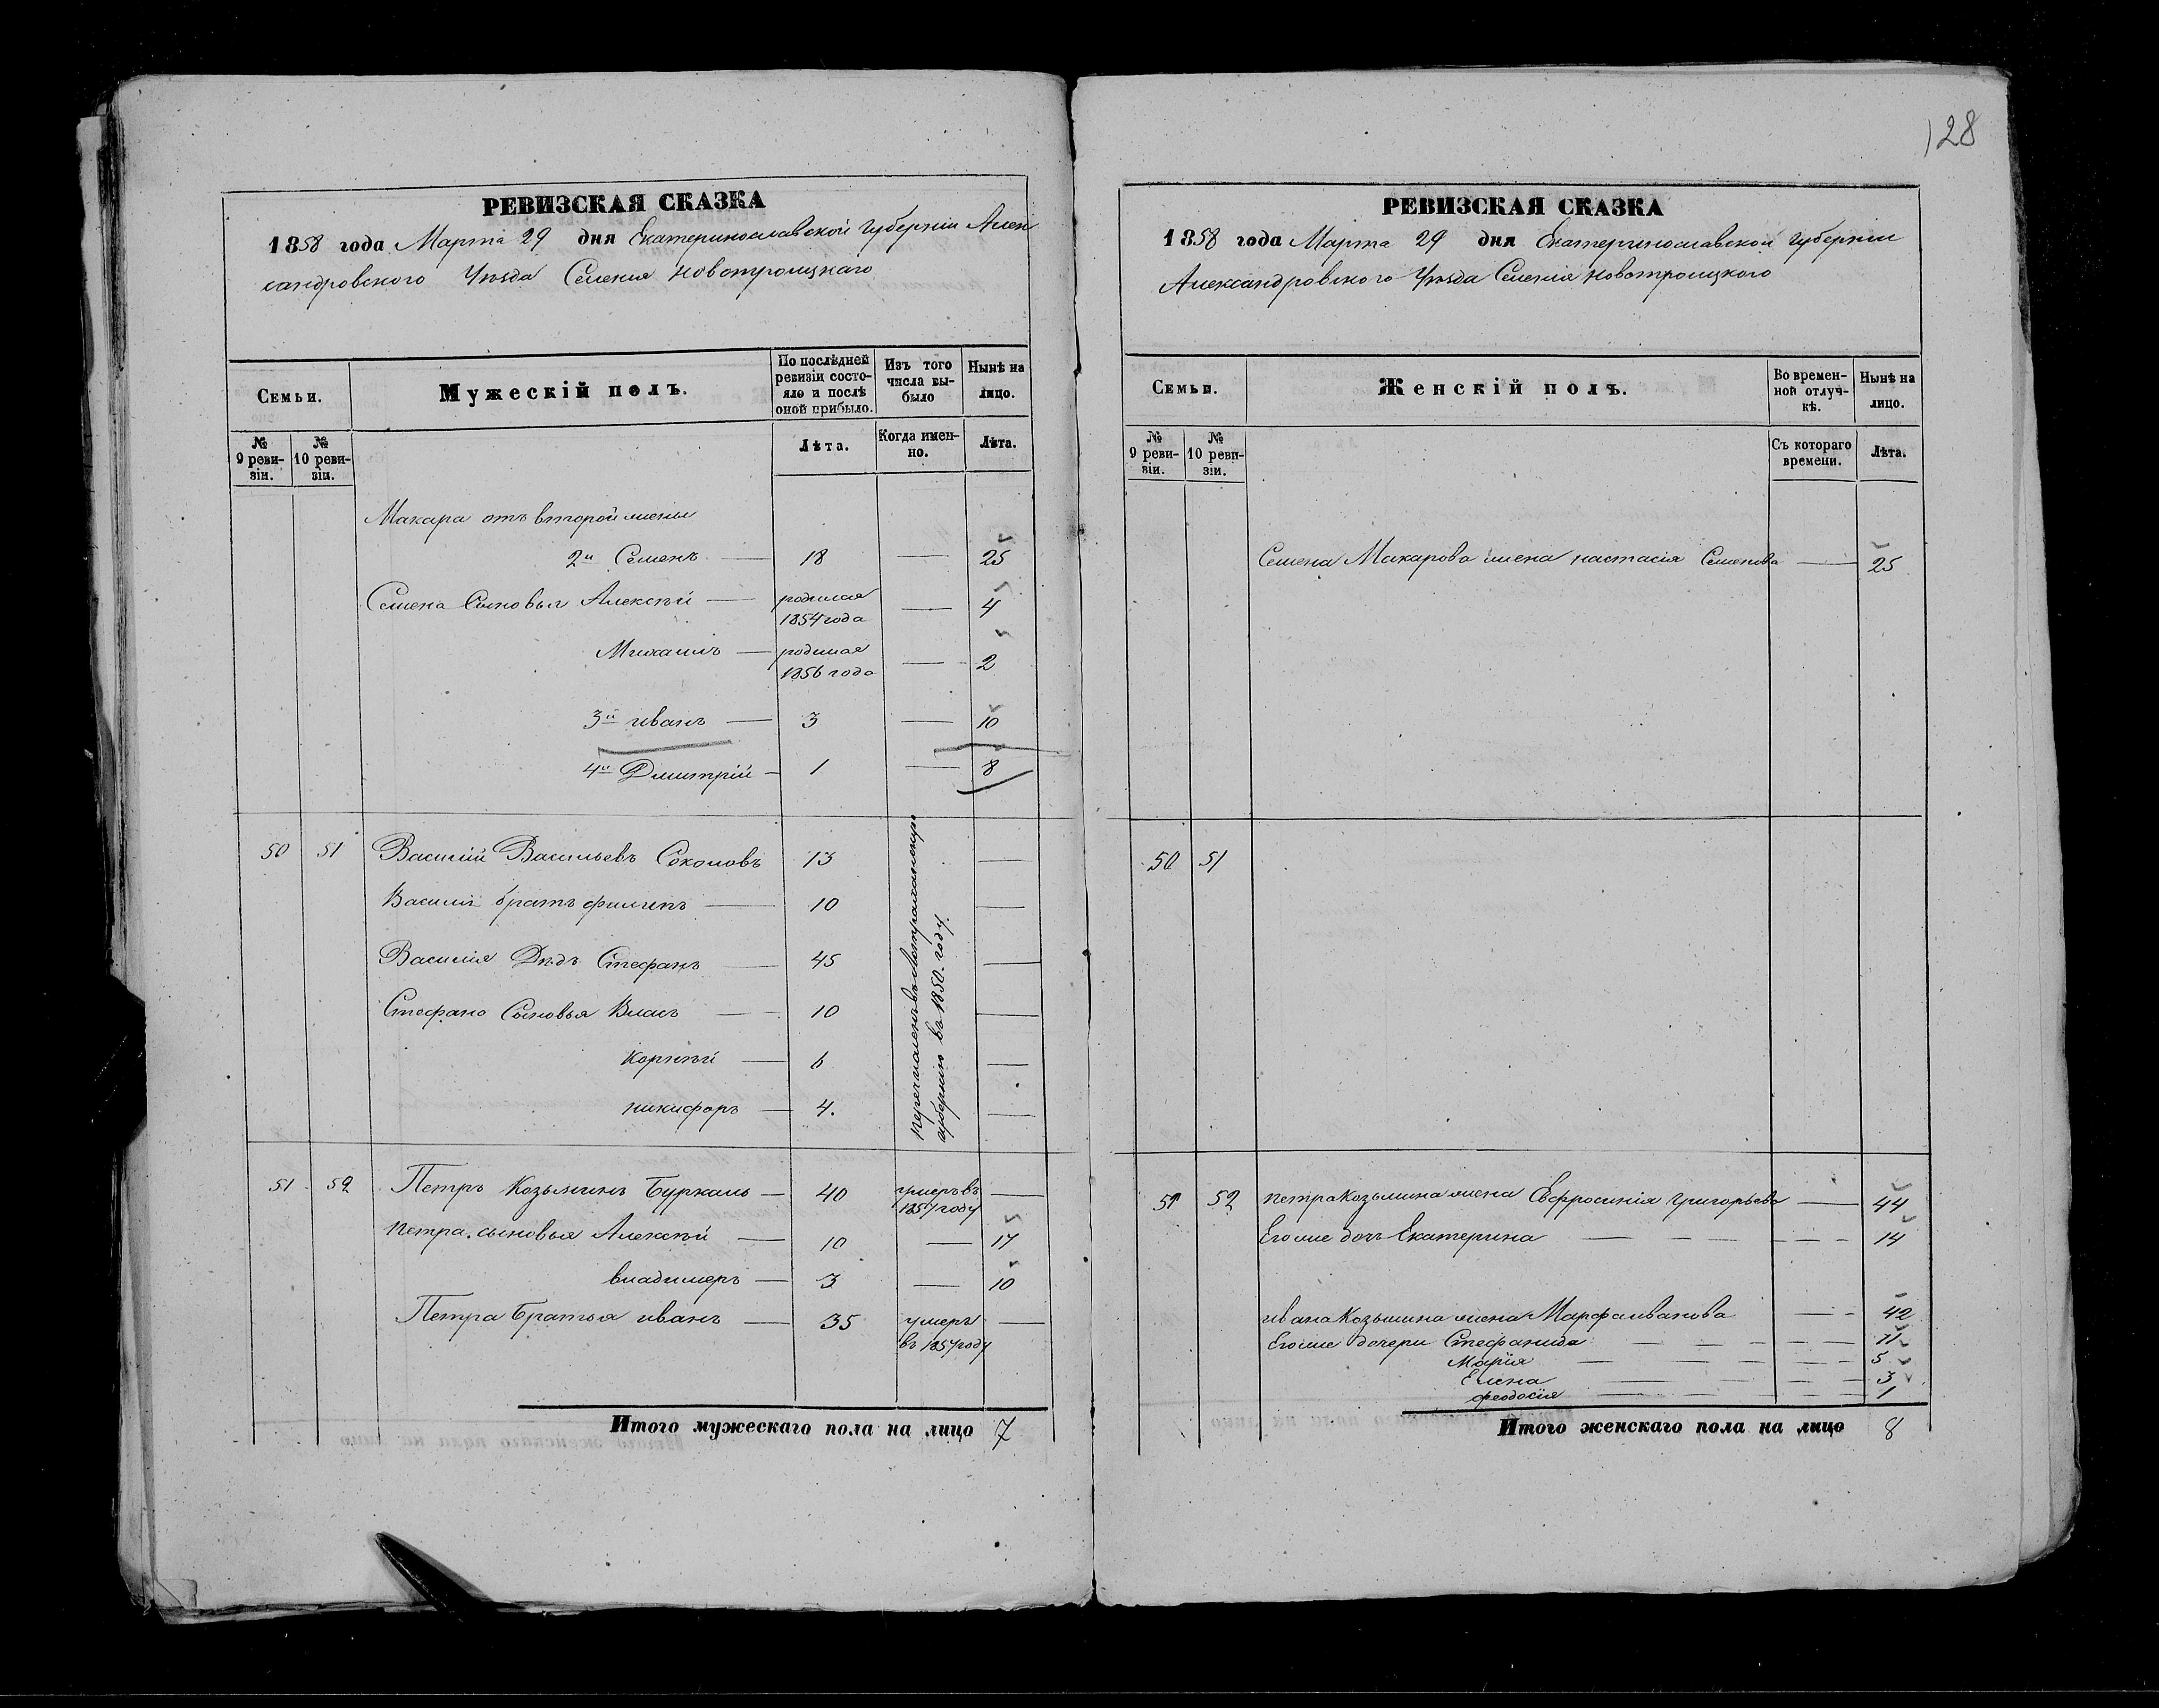 128
РЕВИЗСКАЯ СКАЗКА
1858 года Марта 29 дня Екатеринославской губернiи Алек
сандровского Уѣзда Селенiя новотроицкаго
Семьи.
Мужескiй полъ.
По послѣдней ревизiи состо-
яло и послѣ оной прибыло.
Изъ того числа вы-
было
Нынѣ на лицо.
№ 9 реви-
зiи.
№ 10 реви-
зiи.
Лѣта.
Когда имен-
но.
Лѣта.
Макара отъ второй жены
2й Семенъ — 18 — 25
Семена Сыновья Алексѣй — родился 1854 года — 4
Михаилъ — родился 1856 года — 2
3й иванъ — 3 — 10
4й Дмитрiй — 1 — 8
50 51 Василiй Васильевъ Соколовъ 13 —
Василiя братъ филипъ — 10 —
Василiя Дѣдъ Стефанъ — 45 —
Стефана Сыновья Власъ — 10 —
корнѣй — 6 —
никифоръ — 4. —
губернiю въ 1850. году.
51 52 Петръ Козьминъ Буркаль — 40 умеръ въ 1857 году —
Петра. сыновья Алексѣй — 10 — 17
владимеръ — 3 — 10
Петра Братья иванъ — 35 умеръ въ 1857 году —
Итого мужескаго пола на лицо 7
РЕВИЗСКАЯ СКАЗКА
1858 года Марта 29 дня Екатеринославской губернiи
Александровского Уѣзда Селенiя новотроицкого
Семьи.
Женскiй полъ.
Во времен-
ной отлуч-
кѣ.
Нынѣ на лицо.
№ 9 реви-
зiи.
№ 10 реви-
зiи.
Съ котораго времени.
Лѣта.
Семена Макарова жена настасiя Семенова — 25
50 51
51 52 петра Козьмина жена Евфросинiя григорьева — 44
Егоже дочь Екатерина — 14
ивана Козьмина жена Марфа иванова — 42
Егоже дочери Стефанида — 11
Марiя — 5
Елена — 3
феодосiя — 1
Итого женскаго пола на лицо 8